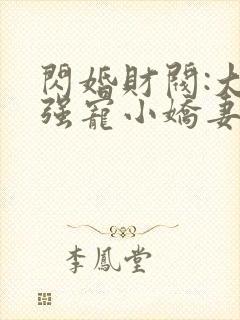 閃婚財閥:大
强寵小嬌妻
李鳳堂